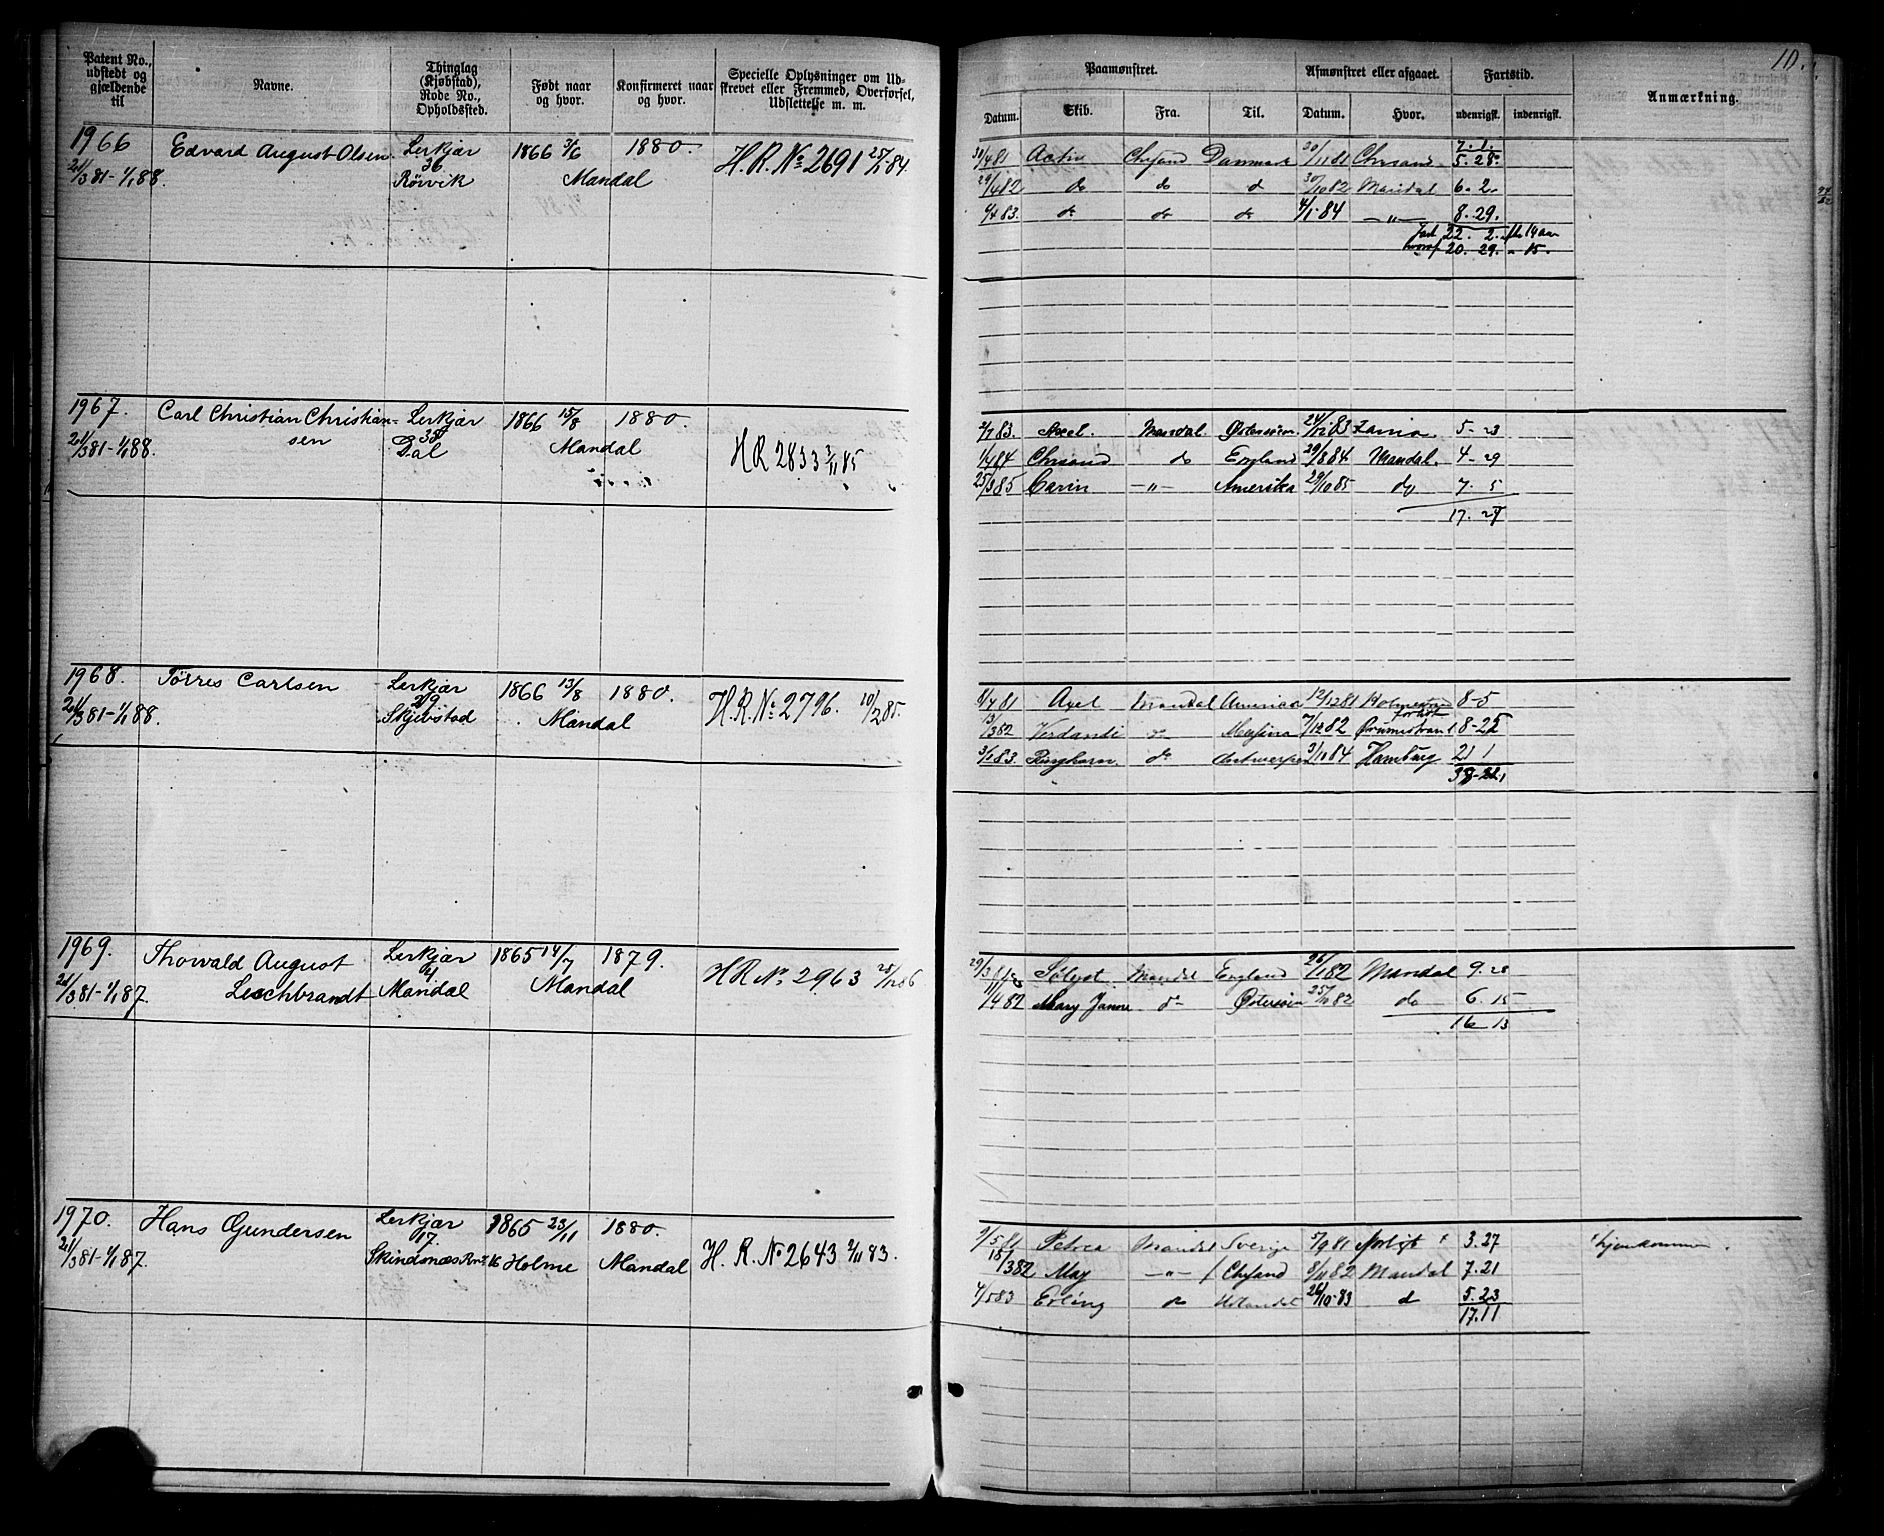 10.
Patent No., udstedt og gjældende til
Navne.
Thinglag (Kjøbstad), Rode No., Opholdssted.
Født naar og hvor.
Konfirmeret naar og hvor.
Specielle Oplysninger om Udskrevet eller Fremmed, Overførsel, Udslettelse m. m.
Paamønstret.
Afmønstret eller afgaaet.
Fartstid.
Anmærkning.
Datum. Skib. Fra. Til. Datum. Hvor. udenrigsk. indenrigsk.
1966 Edvard August Olsen Lerkjær 1866 3/6 1880. H.R. No 2691 25/1 84.
21/3 81-1/1 88. 36 Rövik Mandal
7. 1.
30/4 81 Activ Chrsand Danmark 30/11 81 Chrsand 5. 28.
29/4 82 do do d 30/10 82 Mandal 6. 2.
1/4 83. do do do 4/1 84 -"- 8. 29.
22. 2. 14 aar
20. 29. " 15.
1967. Carl Christian Christian- Lerkjær 1866 15/8 1880.
21/3 81-1/1 88. sen 38 Dal Mandal HR 2833 3/11 85
2/7 83. Axel. Mandal Østersøen 24/12 83 5 - 23
1/4 84 Chrsand do England 29/8 84 Mandal. 4 - 29
25/3 85 Carin -"- Amerika 29/10 85 do 7. 5
17. 27
1968. Törres Carlsen Lerkjær 1866 13/8 1880. H.R. No 2796. 10/2 85.
21/3 81-1/1 88. 29 Skjebstad Mandal
1/4 81 Axel Mandal America 12/12 81 8-5
13/3 82 Verdandi do Messina 7/12 82 8-25
3/1 83. Ringhorn. do Antwerpen 3/10 84 Hamburg 21 1
1969. Thorvald August Lerkjær 1865 14/7 1879. HR No 2963 28/12 86
21/3 81-1/1 87. Leschbrandt 4 Mandal Mandal
29/3 81 Sölyst Mandal England 26/1 82 Mandal 9. 28
11/4 82 Mary Janne do Østersøen 25/10 82 do 6. 15
16 13
1970. Hans Gundersen Lerkjær 1865 23/11 1880.
21/3 81-1/1 87. 17. Skindsnæs Holme Mandal H. R. No 2643 2/11 83.
9/5 81 Petrea Mandal Sverige 5/9 81 3. 27 hjemkommen.
15/3 82 May -"- Chrsand 8/11 82 Mandal 7. 21
4/5 83 Erling do Udlandet 26/10 83 d 5. 23
17. 11